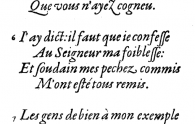 Que vous n'ayez cogneu.
6 I'ay dict: il faut que ie confesse
Au Seigneur ma foiblesse:
Et soudain mes pechez commis
M'ont esté tous remis.
7 Les gens de bien à mon exemple